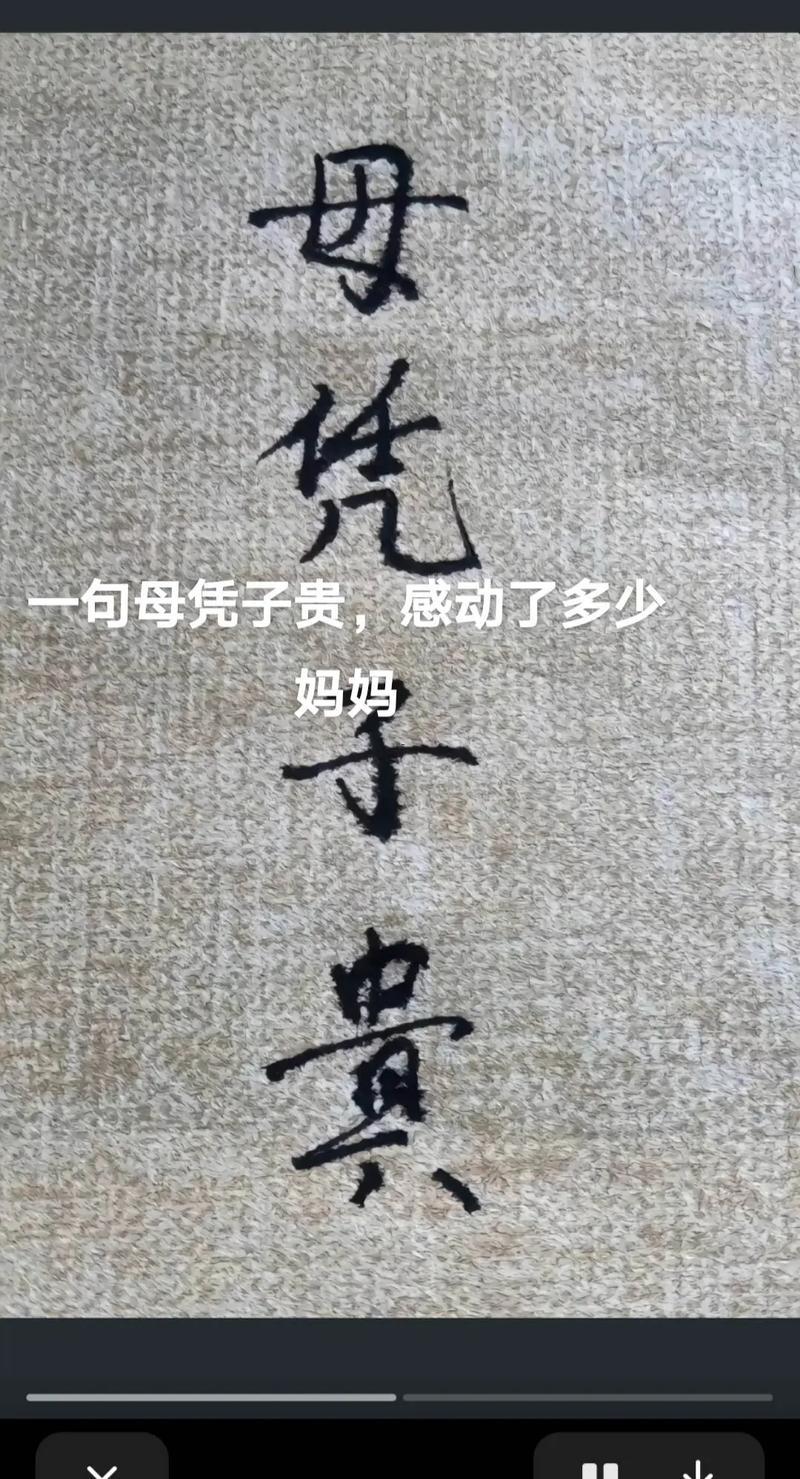 毋凭子貴
一句母凭子贵，感动了多少
妈妈